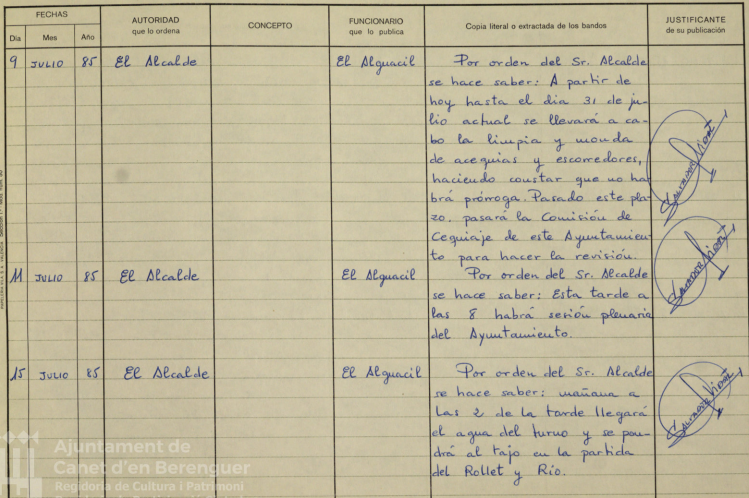 FECHAS
AUTORIDAD
que lo ordena
CONCEPTO
FUNCIONARIO
que lo publica
Copia literal o extractada de los bandos
JUSTIFICANTE
de su publicación
Día Mes Año
9 JULIO 85 El Alcalde El Alguacil Por orden del Sr. Alcalde
se hace saber: A partir de
hoy hasta el dia 31 de ju-
lio actual se llevará a ca-
bo la limpia y monda
de acequias y escorredores,
haciendo constar que no ha
brá prórroga. Pasado este pla-
zo. pasará la Comisión de
Cequiaje de este Ayuntamien-
to para hacer la revisión.
Salvador Vidal
11 JULIO 85 El Alcalde El Alguacil Por orden del Sr. Alcalde
se hace saber: Esta tarde a
las 8 habrá sesión plenaria
del Ayuntamiento.
Salvador Vidal
15 JULIO 85 El Alcalde El Alguacil Por orden del Sr. Alcalde
se hace saber: mañana a
las 2 de la tarde llegará
el agua del turno y se pon-
drá al tajo en la partida
del Rollet y Río.
Salvador Vidal
Ajuntament de
Canet d'en Berenguer
Regidoria de Cultura i Patrimoni